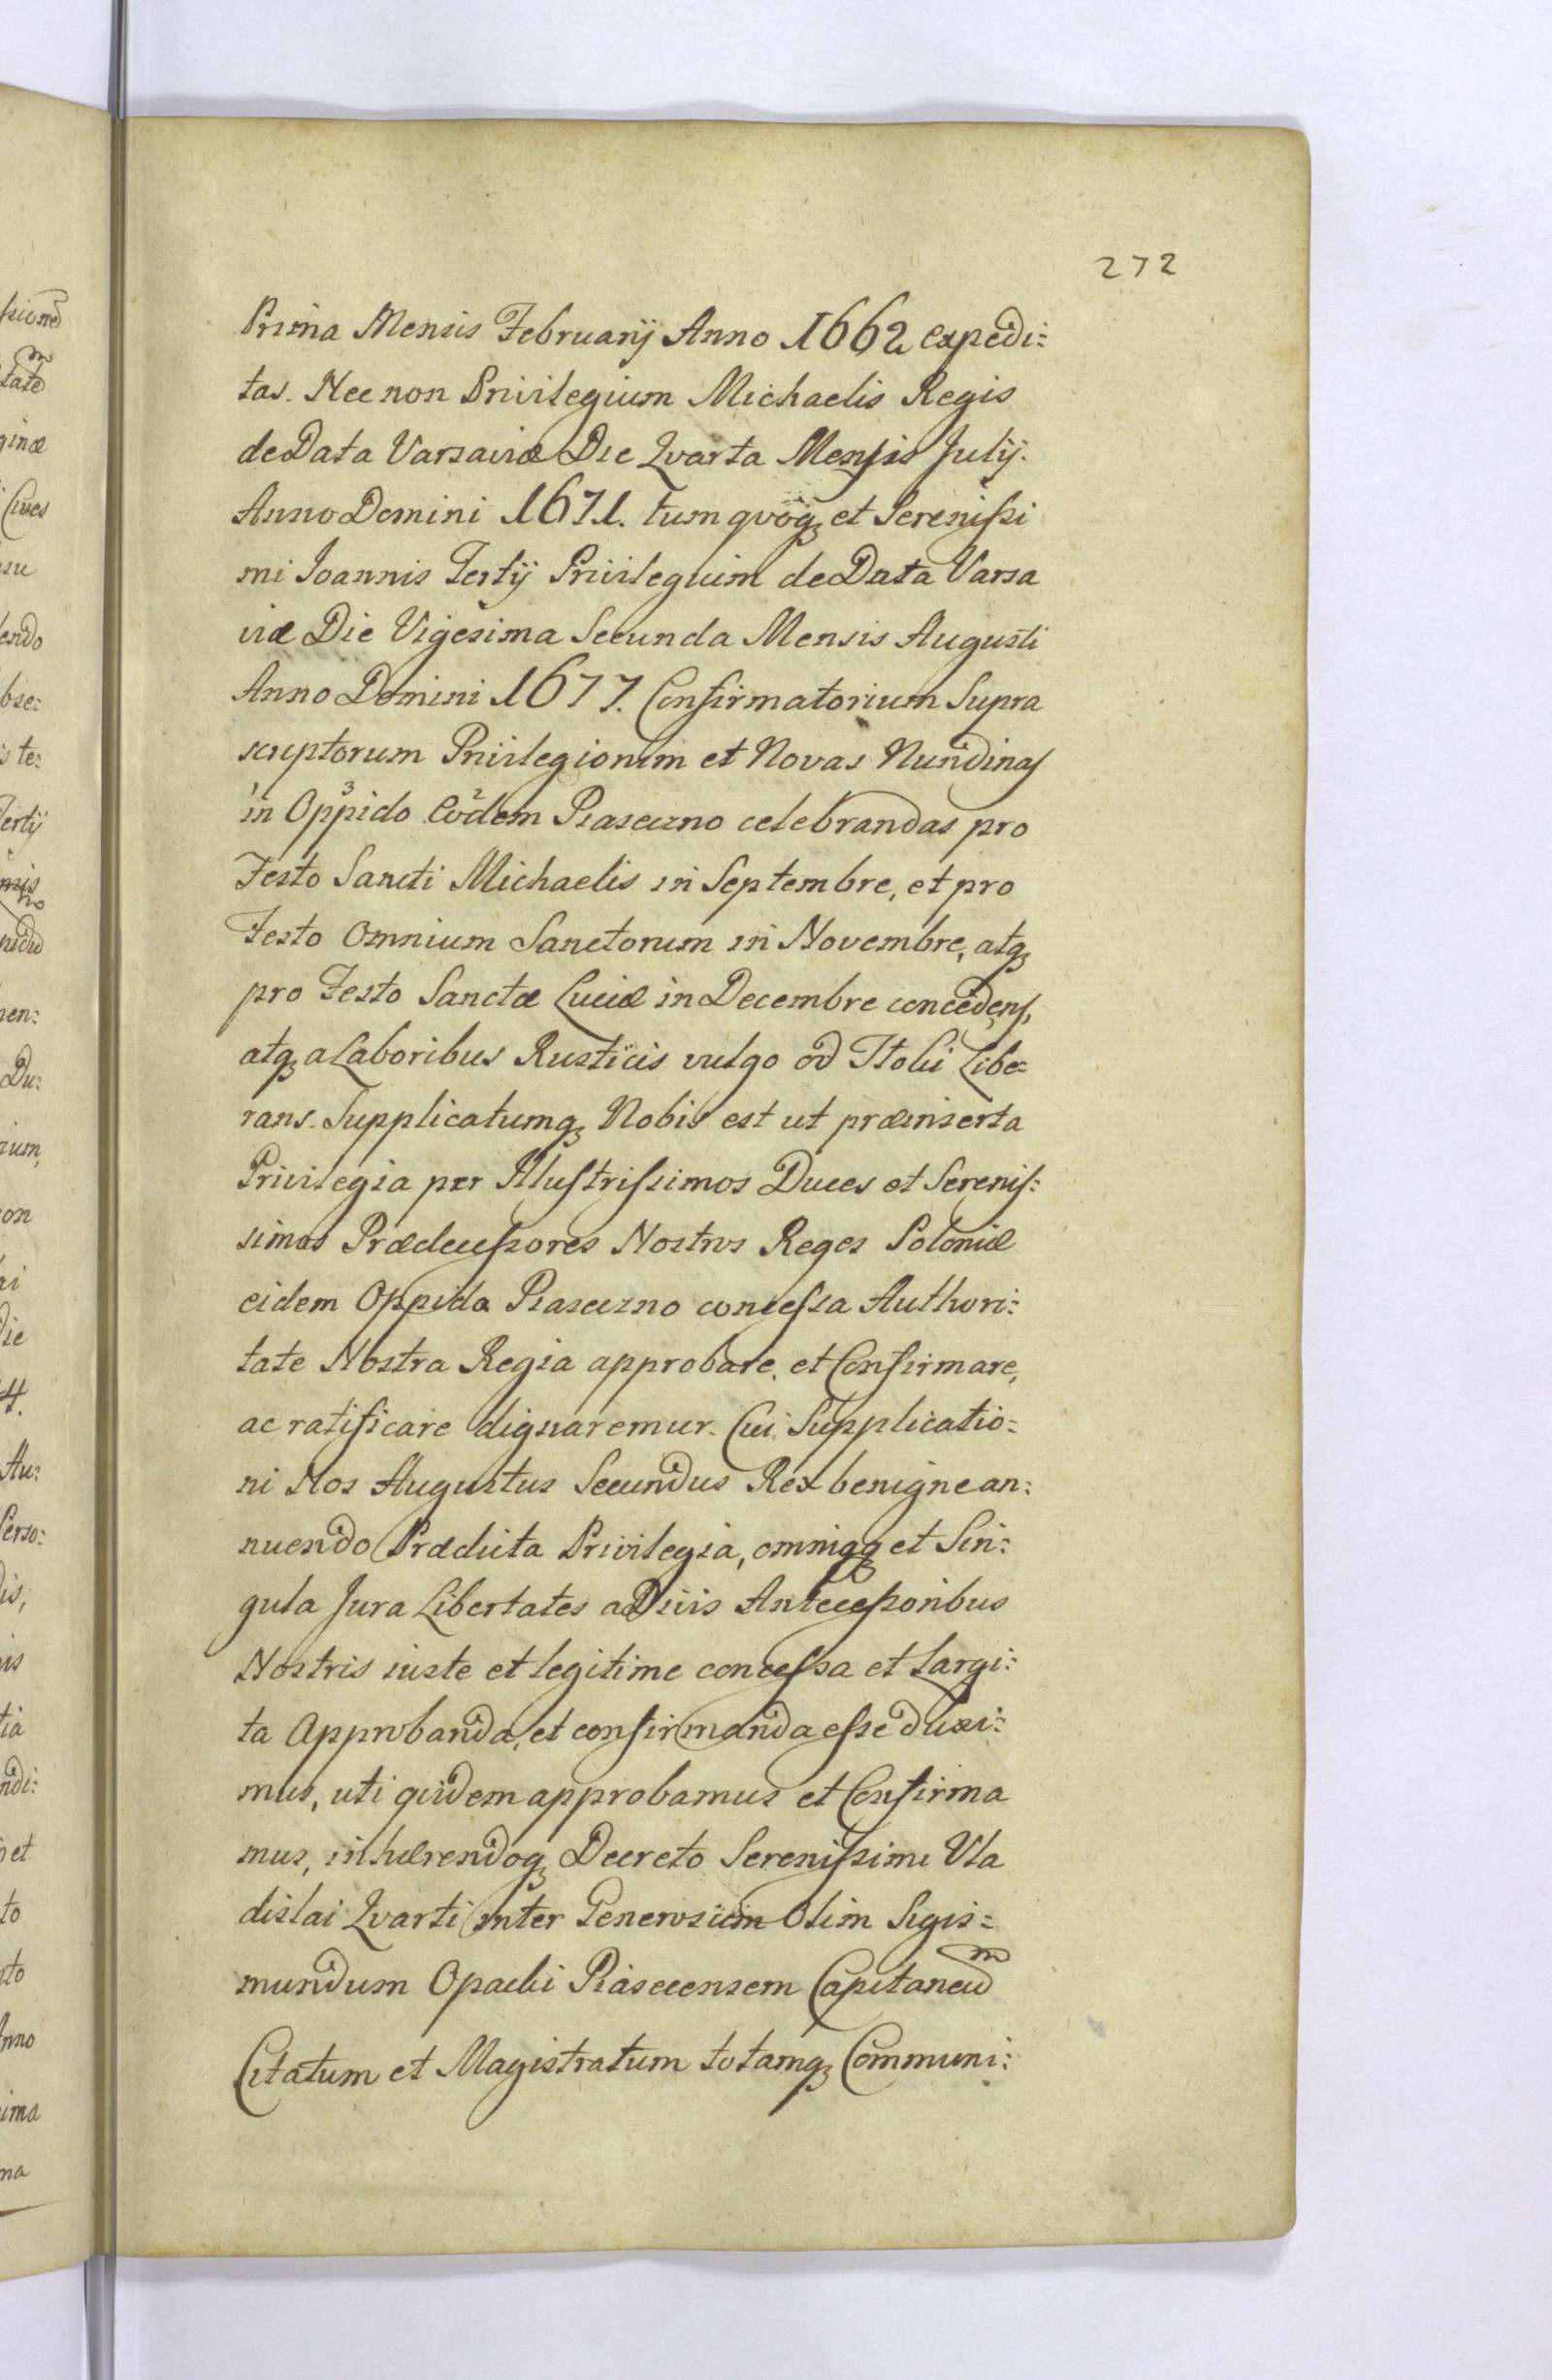 272
Prima Mensis Februarij Anno 1662 expedi:
tas. Nec non Privilegium Michaelis Regis
de Data Varsaviæ Die Qvarta Mensis Julij.
Anno Domini 1671. tum qvoq₃ et Serenissi
mi Joannis Tertij Privilegium de Data Varsa
viæ Die Vigesima Secunda Mensis Augusti
Anno Domini 1677. Confirmatorium Supra
scriptorum Privilegiorum et Novas Nundinas
in Oppido Eodem Piaseczno celebrandas pro
Festo Sancti Michaelis in Septembre, et pro
Festo Omnium Sanctorum in Novembre, atq₃
pro Festo Sanctæ Luciæ in Decembre concedens,
atq₃ a Laboribus Rusticis vulgo od Tloki Libe=
rans. Supplicatumq₃ Nobis est ut præinserta
Privilegia per Illustrissimos Duces et Serenis:
simos Prædecessores Nostros Reges Poloniæ
eidem Oppido Piaseczno concessa Authori:
tate Nostra Regia approbare, et Confirmare,
ac ratificare dignaremur. Cui Supplicatio=
ni Nos Augustus Secundus Rex benigne an:
nuendo Prædicta Privilegia, omniaq₃ et Sin:
gula Jura Libertates a Divis Antecessoribus
Nostris iuste et legitime concessa et Largi:
ta Approbanda, et confirmanda esse duxi:
mus, uti quidem approbamus et Confirma
mus, inhærendoq₃ Decreto Serenissimi Vla
dislai Qvarti inter Generosum Olim Sigis=
mundum Opacki Piasecensem Capitaneum
Citatum et Magistratum totamq₃ Communi: